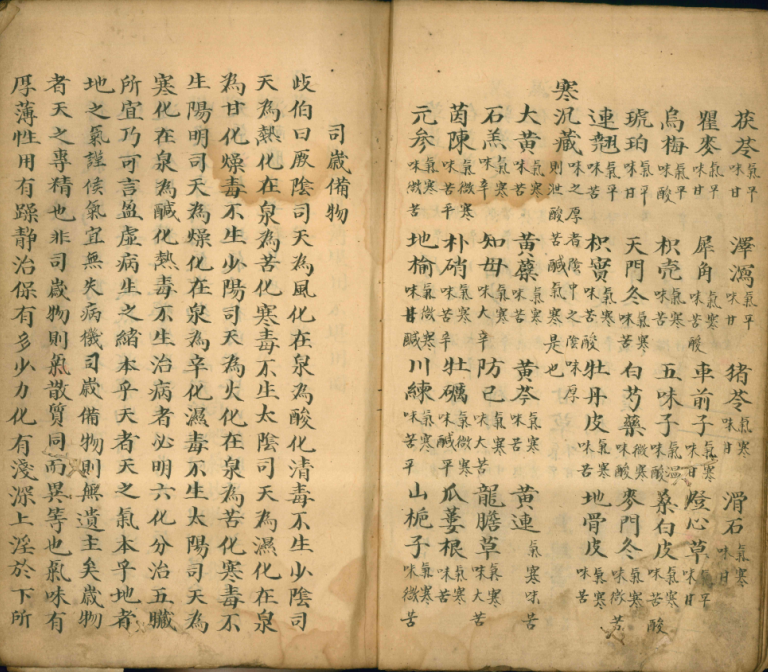 茯苓氣平味甘 澤瀉氣平味甘 猪苓氣寒味甘 滑石氣寒味甘
瞿麥氣平味甘 犀角氣寒味苦酸 車前子氣寒味甘 燈心草氣平味甘
烏梅氣平味酸 枳壳氣寒味苦 五味子氣温味酸 桑白皮氣寒味苦酸
琥珀氣平味甘 天門冬氣寒味苦 白芍藥微寒味酸 麥門冬氣寒味微苦
連翹氣平味苦 枳實氣寒味苦酸 牡丹皮氣寒味苦 地骨皮氣寒味苦
寒沉藏則泄酸苦鹹氣寒是也味之厚者陰中之陰味厚
大黄氣寒味苦 黄蘗氣寒味苦 黄芩氣寒味苦 黄連氣寒味苦
石羔氣寒味辛 知母氣寒味大辛 防己氣寒味大苦 龍膽草氣寒味大苦
茵陳氣微寒味苦平 朴硝氣寒味苦辛 牡礪氣微寒味鹹平 瓜蔞根氣寒味苦
元参氣寒味微苦 地榆氣微寒味甘鹹 川練氣寒味苦平 山梔子氣寒味微苦
司歲備物
歧伯曰厥陰司天為風化在泉為酸化清毒不生少陰司
天為熱化在泉為苦化寒毒不生太陰司天為濕化在泉
為甘化燥毒不生少陽司天為火化在泉為苦化寒毒不
生陽明司天為燥化在泉為辛化濕毒不生太陽司天為
寒化在泉為鹹化熱毒不生治病者必明六化分治五臟
所宜乃可言盈虛病生之緒本乎天者天之氣本乎地者
地之氣謹候氣宜無失病機司歲備物則無遺主矣歲物
者天之專精也非司歲物則氣散質同而異等也氣味有
厚薄性用有躁静治保有多少力化有淺深上淫於下所